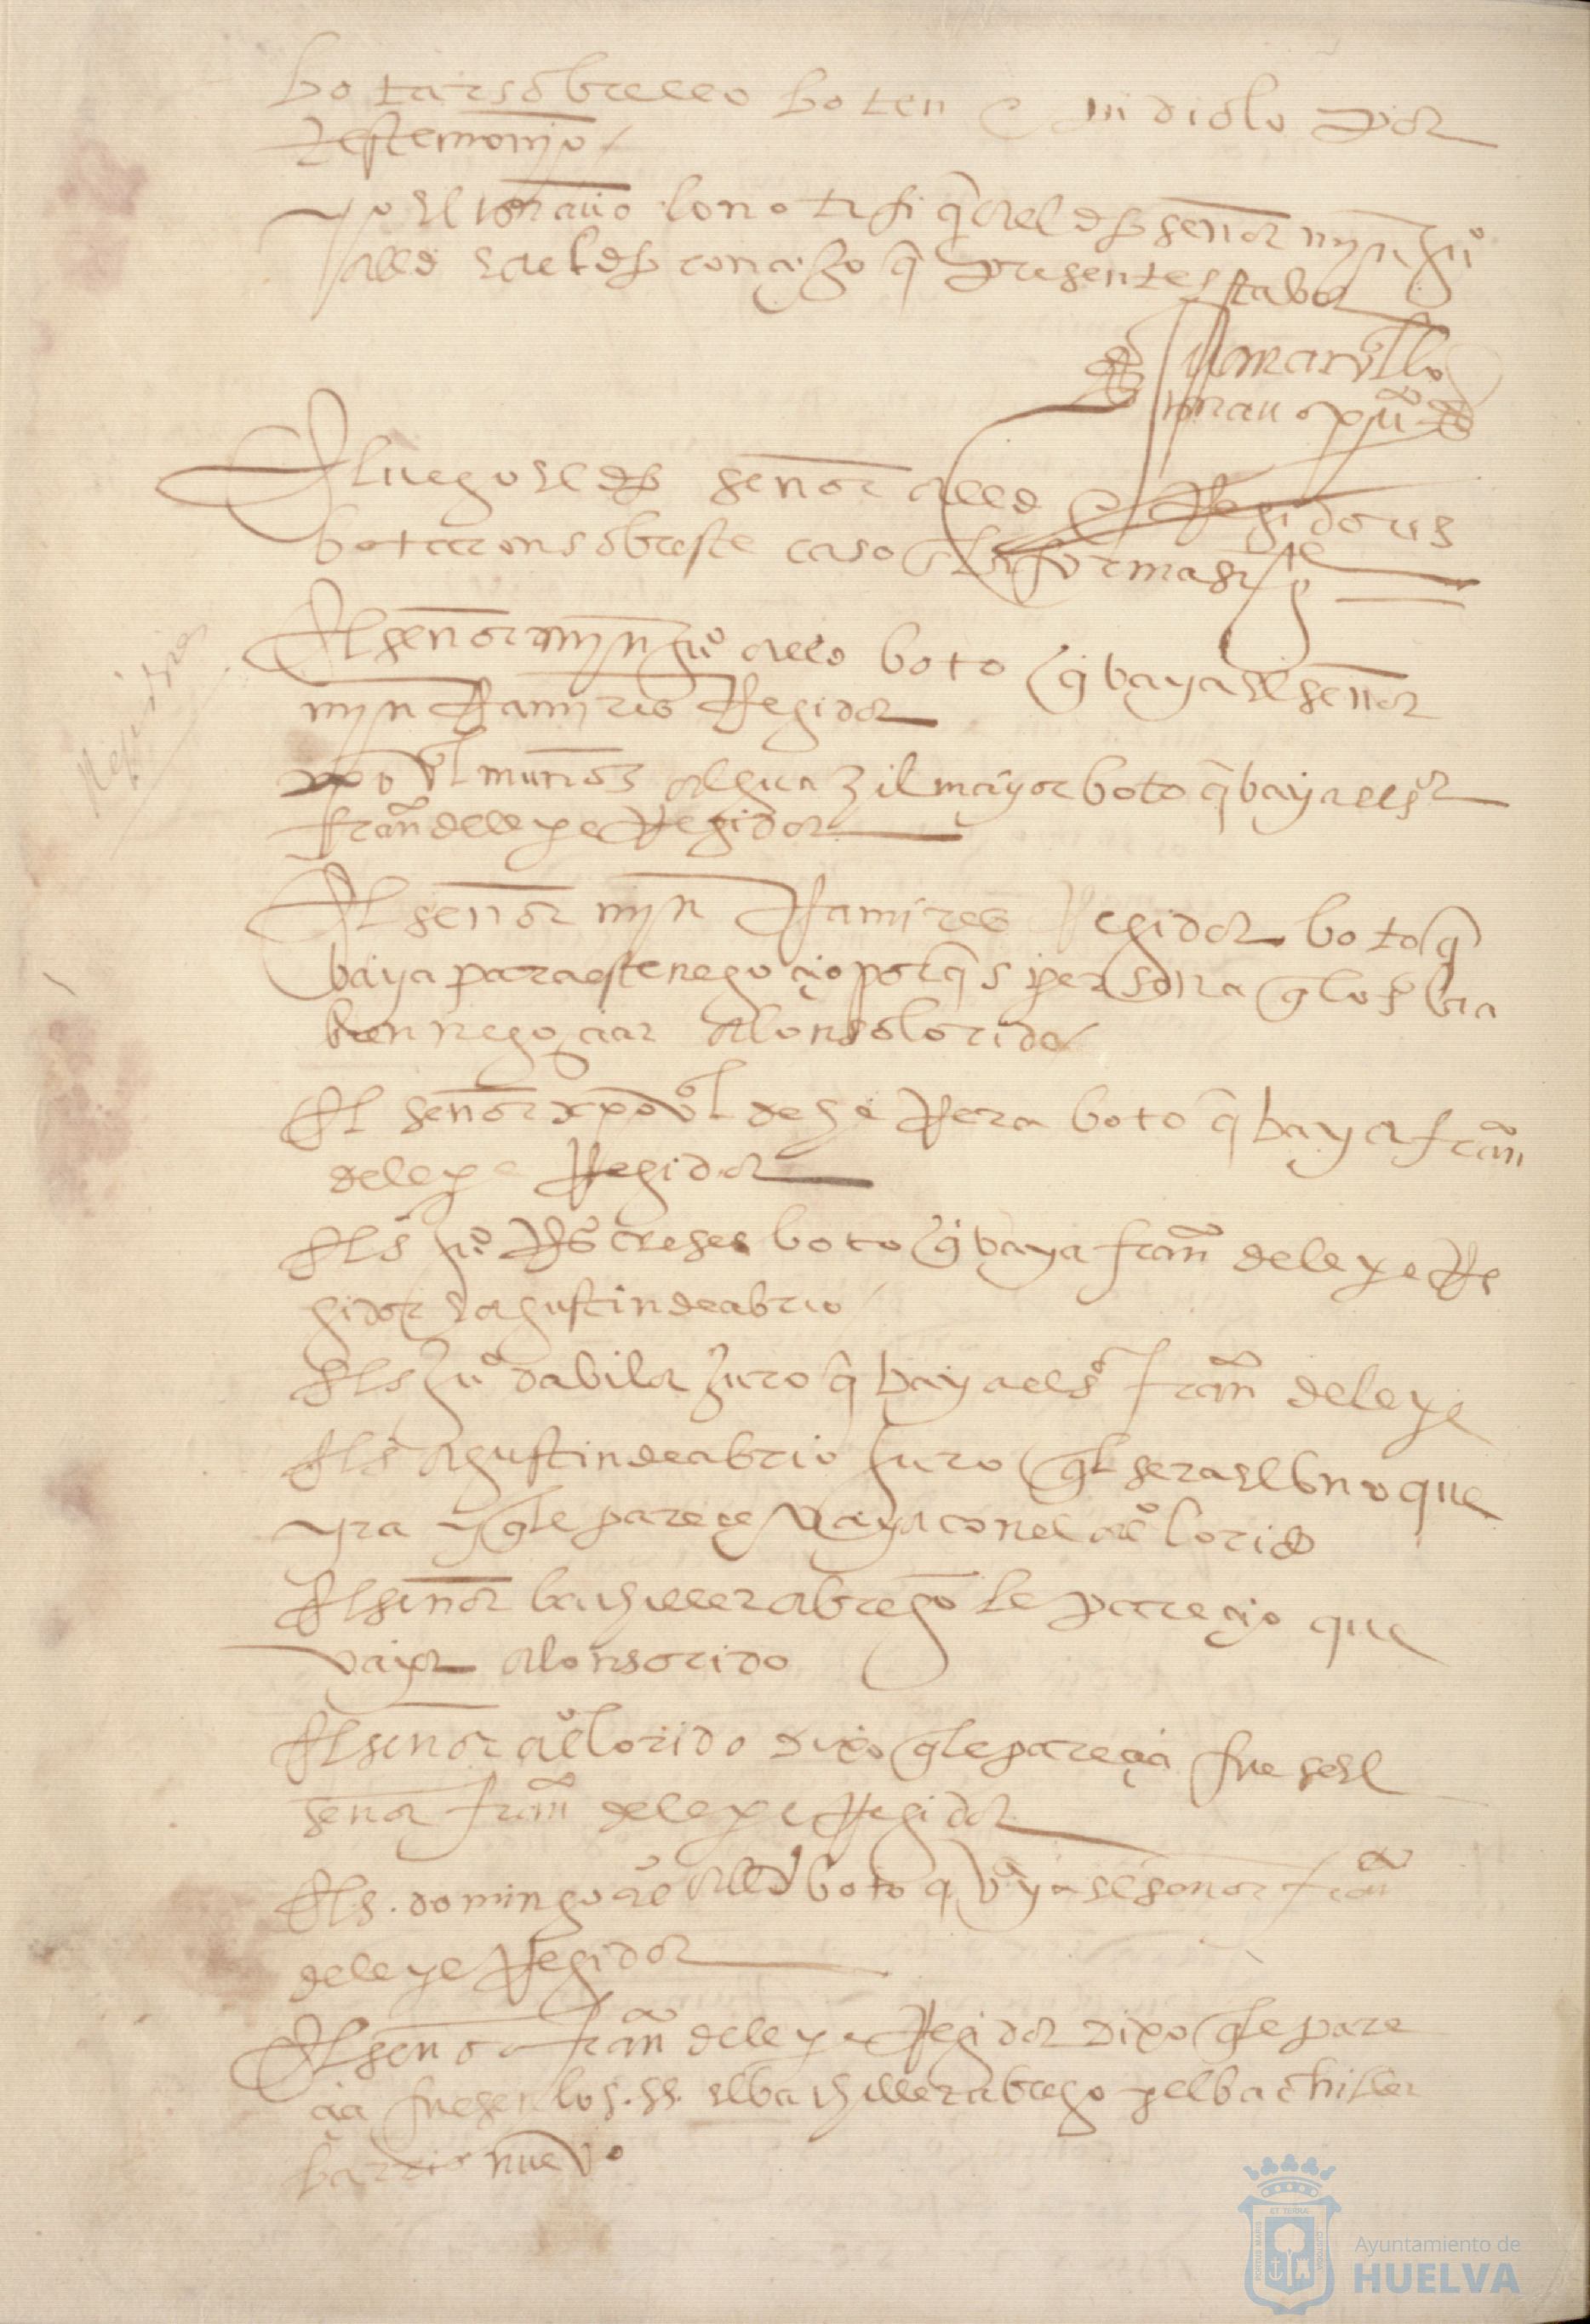 botar sobrello boten e pidiolo por
testemonyo
yo el escriuano lo notifiq al dho señor myn ju°
alld e al dho conçejo q presentes estaba
escriuano pu°
E luego el dho señor alld e Regidores
botaron sobreste caso en la forma sigte
El señor myn ju° alld boto q baya el señor
myn Ramires Regidor
xpoual muños alguazil mayor boto q baya el sor
fran de lepe Regidor
El señor myn Ramires Regidor boto q
baya para este negoçio porq es persona q lo sabra
bien negoçiar alonso lorido
El señor xpoual de herrera boto q baya fran
de lepe Regidor
El s ju° Rs creses boto q baya fran de lepe Re
gidor e agustin de abrio
El s ju° dabila juro q baya el sr fran de lepe
El s agustin de abrio juro ql sera el vno que
yra y q le pareçe vaya con el al° lorido
El señor bachiller abrego le pareçio que
vaya alonso lorido
El señor al° lorido dixo q le pareçia fuese el
señor fran de lepe Regidor
El s. domingo alld boto q vaya el señor fran
de lepe Regidor
El señor fran de lepe Regidor dixo q le pare
çia fuesen los. ss. el bachiller abrego y el bachiller
barrio nuevo
Ayuntamiento de
HUELVA